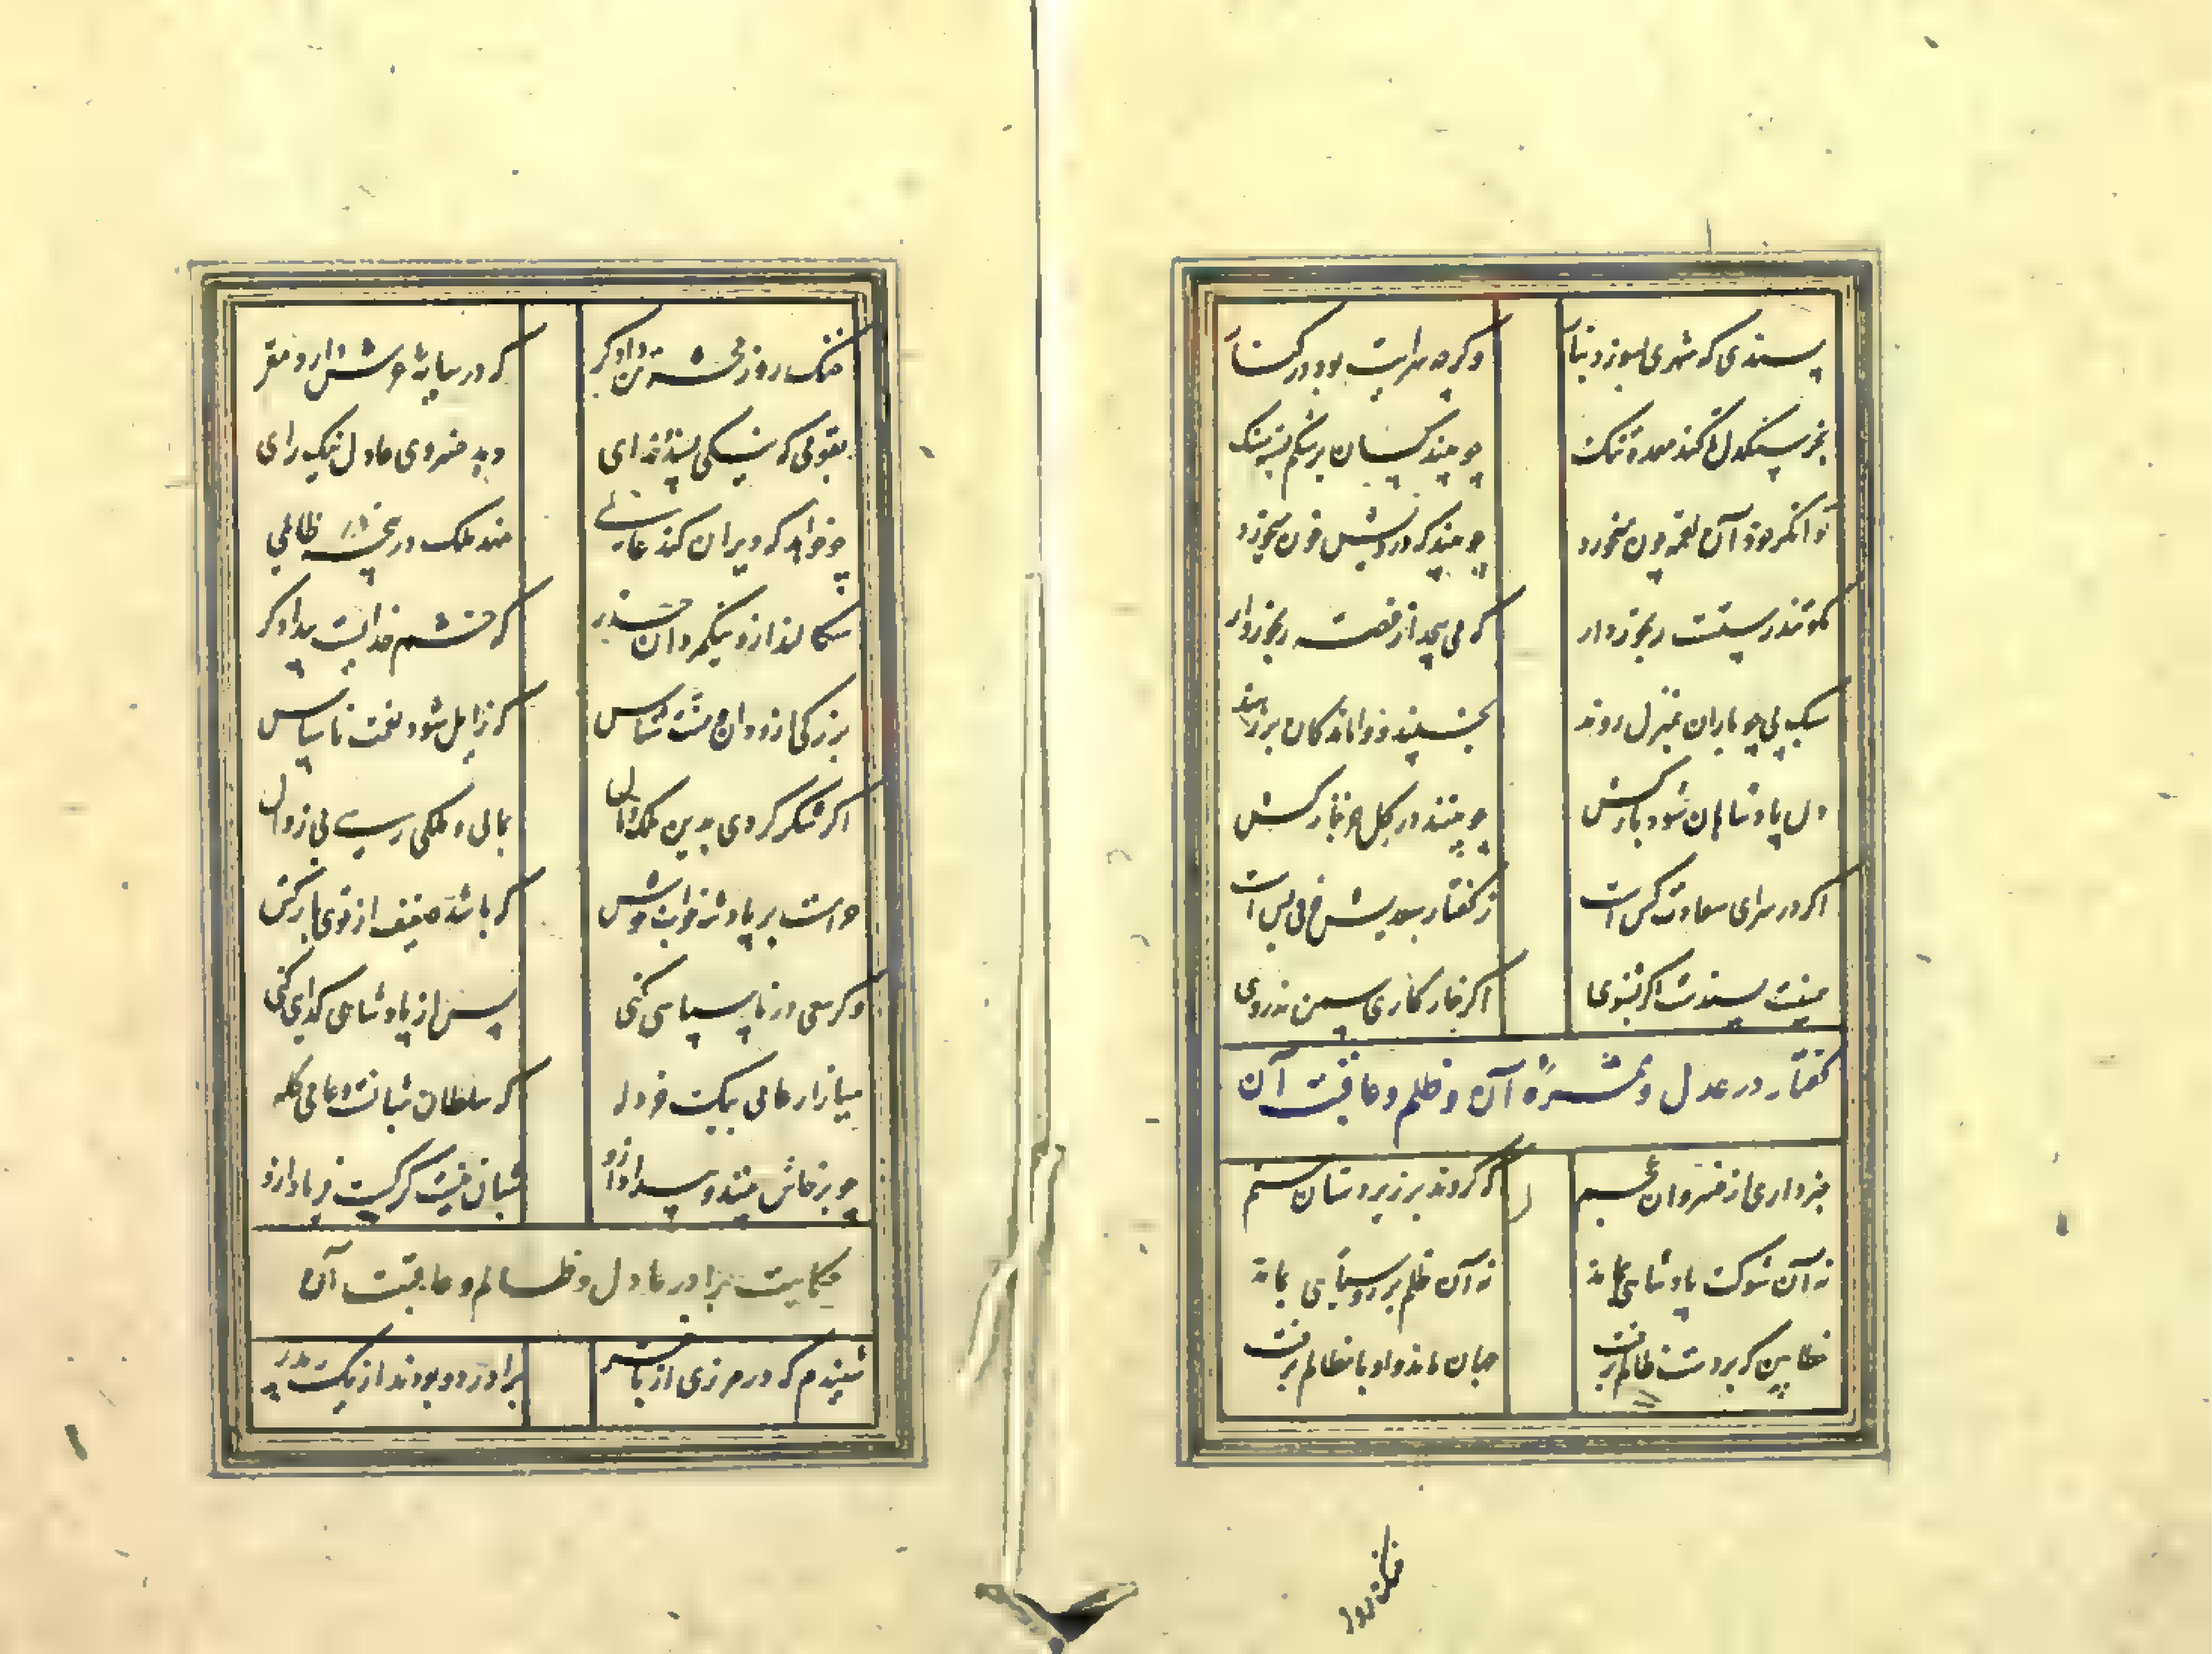 پسندی که شهری بسوزد بنار وگرچه سرایت بود بر کنار
بجز سنگدل کی کند معده تنگ چو بیند کسان بر شکم بسته سنگ
توانگر خود آن لقمه چون میخورد چو بیند که درویش خون میخورد
مگو تندرستست رنجوردار که می پیچد از غصه رنجوروار
سبک پی چو یاران بمنزل روند نخسپند و واماندگان بر رهند
دل پادشاهان شود بارکش چو بینند در گل خر خارکش
اگر در سرای سعادت کس است ز گفتار سعدیش حرفی بس است
همینت پسندست اگر بشنوی اگر خار کاری سمن ندروی
گفتار در عدل و ثمره آن و ظلم و عاقبت آن
خبر داری از خسروان عجم که کردند بر زیردستان ستم
نه آن شوکت پادشاهی بماند نه آن ظلم بر روستایی بماند
خطا بین که بر دست ظالم برفت جهان ماند و او با مظالم برفت
خنک روز
خنک روز محشر تن دادگر که در سایه عرش دارد مقر
بقومی که نیکی پسندد خدای دهد خسروی عادل نیک رای
چو خواهد که ویران کند عالمی نهد ملک در پنجه ظالمی
سگالند ازو نیکمردان حذر که خشم خدایست بیدادگر
بزرگی ازو دان و منت شناس که زایل شود نعمت ناسپاس
اگر شکر کردی بدین ملک و مال بمالی و ملکی رسی بی زوال
حرامست بر پادشه خواب خوش که باشد ضعیف از قوی بارکش
وگر سعی در ناسپاسی کنی پس از پادشاهی گدایی کنی
میازار عامی بیک خردله که سلطان شبانست و عامی گله
چو پرخاش بینند و بیداد ازو شبان نیست گرگست فریاد ازو
حکایت برادر عادل و ظالم و عاقبت آن
شنیدم که در مرزی از باختر برادر دو بودند از یک پدر